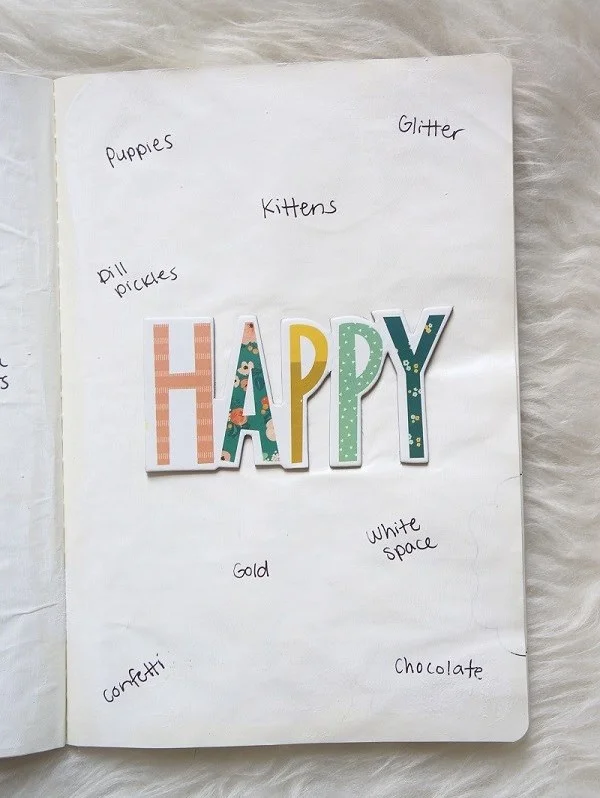 Puppies
Glitter
Kittens
Dill
pickles
HAPPY
White
space
Gold
confetti
Chocolate